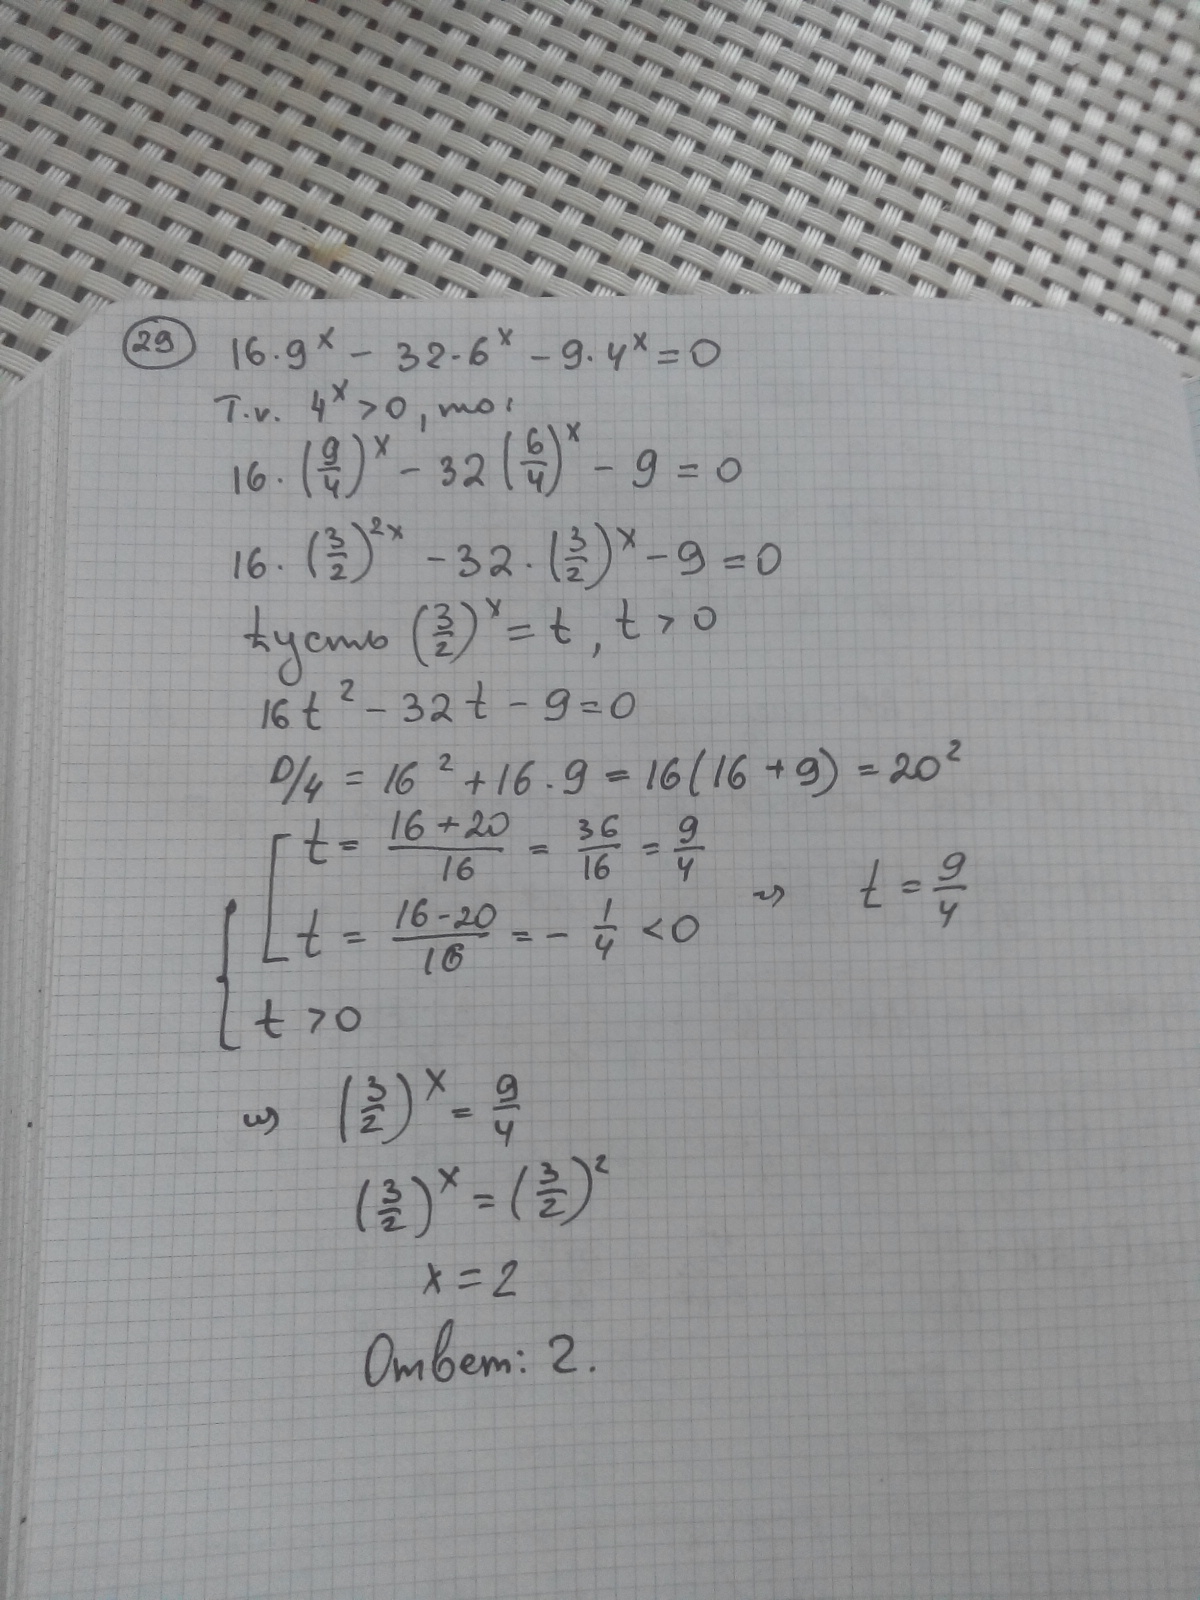 29 16·9^x - 32·6^x - 9·4^x = 0
Т.к. 4^x > 0, то:
16·(9/4)^x - 32(6/4)^x - 9 = 0
16·(3/2)^2x - 32·(3/2)^x - 9 = 0
Пусть (3/2)^x = t, t > 0
16t^2 - 32t - 9 = 0
D/4 = 16^2 + 16·9 = 16(16+9) = 20^2
t = (16+20)/16 = 36/16 = 9/4
t = (16-20)/16 = -1/4 < 0 ⇒ t = 9/4
t > 0
⇒ (3/2)^x = 9/4
(3/2)^x = (3/2)^2
x = 2
Ответ: 2.